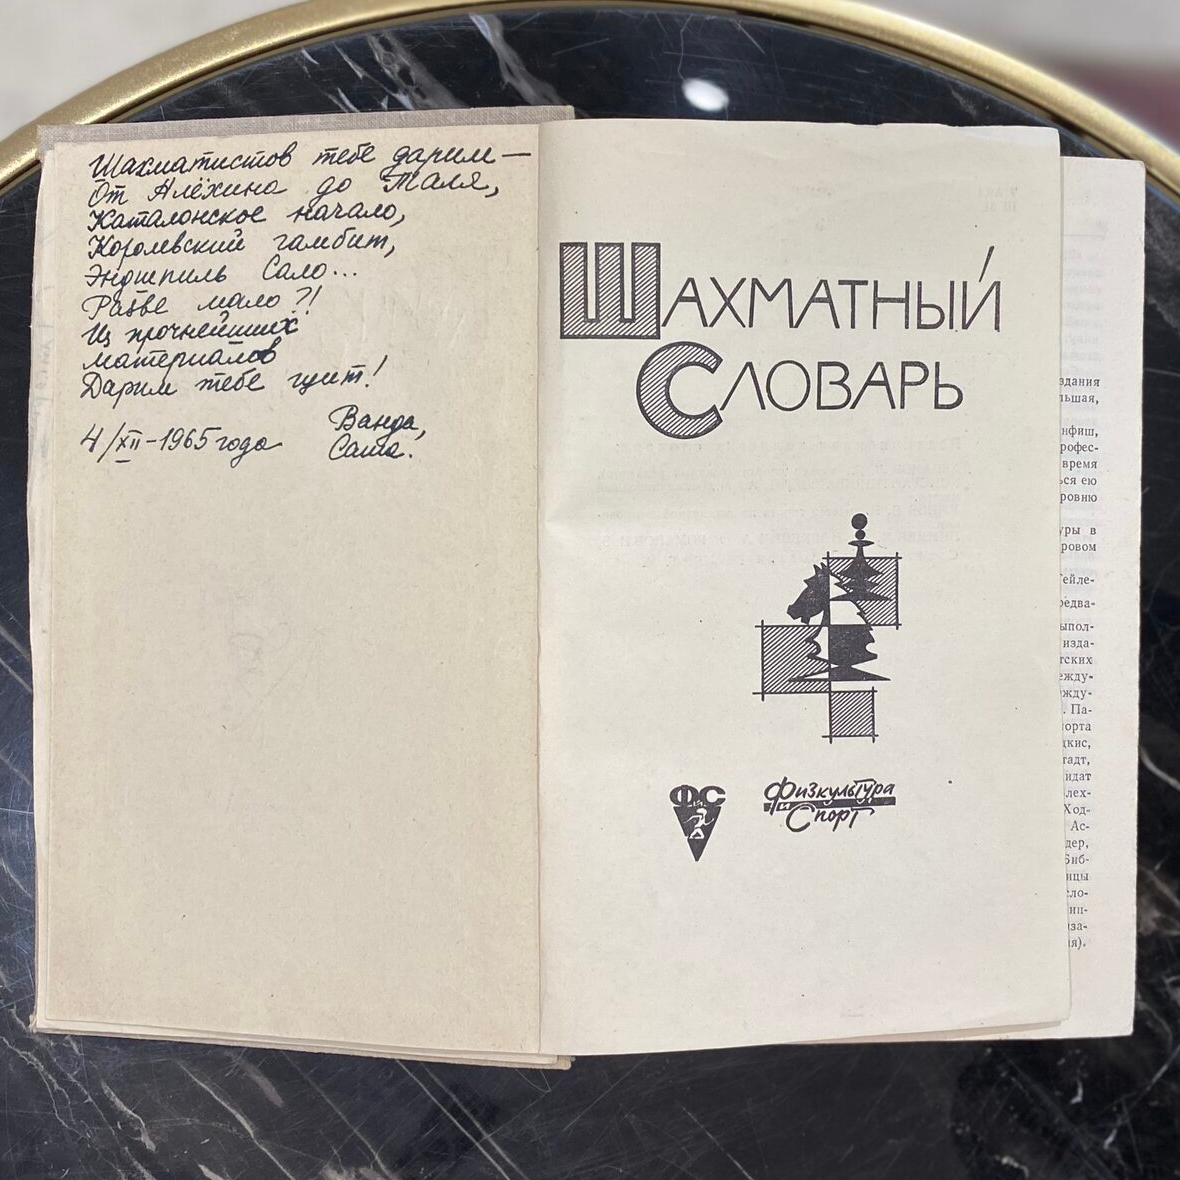 Шахматистов тебе дарим —
От Алёхина до Таля,
Каталонское начало,
Королевский гамбит,
Эндшпиль Сало...
Разве мало?!
Из прочнейших
материалов
Дарим тебе щит!
Ванда,
4/XII-1965 года Саша.
ШАХМАТНЫЙ
СЛОВАРЬ
ФиС
Физкультура
и
Спорт
здания
льшая,
нфиш,
рофес-
время
ься ею
ровню
уры в
ровом
Гейле-
редва-
ыпол-
изда-
тских
ежду-
жду-
. Па-
порта
цкис,
тадт,
идат
лех-
Ход-
Ас-
дер,
Биб-
ницы
сло-
ип-
иза-
ия).